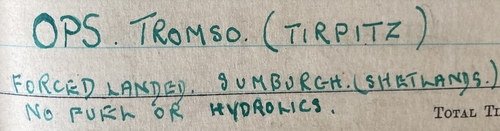 OPS. TROMSO. (TIRPITZ)
FORCED LANDED. SUMBURGH. (SHETLANDS.)
NO FUEL OR HYDROLICS.
TOTAL